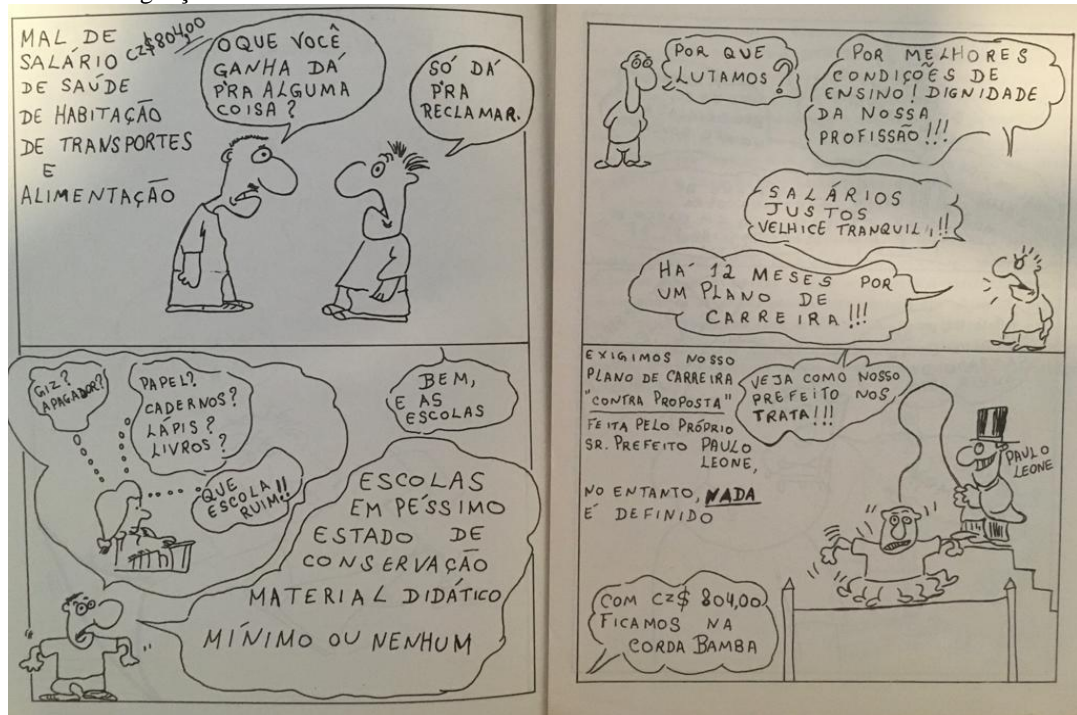 MAL DE
SALÁRIO CZ$804,00
DE SAÚDE
DE HABITAÇÃO
DE TRANSPORTES
E
ALIMENTAÇÃO
O QUE VOCÊ
GANHA DÁ
P'RA ALGUMA
COISA?
SÓ DÁ
P'RA
RECLAMAR.
BEM,
E AS
ESCOLAS
GIZ?
APAGADOR?
PAPEL?
CADERNOS?
LÁPIS?
LIVROS?
QUE
ESCOLA
RUIM!!
ESCOLAS
EM PÉSSIMO
ESTADO DE
CONSERVAÇÃO
MATERIAL DIDÁTICO
MÍNIMO OU NENHUM
POR QUE
LUTAMOS?
POR MELHORES
CONDIÇÕES DE
ENSINO! DIGNIDADE
DA NOSSA
PROFISSÃO!!!
SALÁRIOS
JUSTOS
VELHICE
HÁ 12 MESES POR
UM PLANO DE
CARREIRA!!!
EXIGIMOS NOSSO
PLANO DE CARREIRA
"CONTRA PROPOSTA"
FEITA PELO PRÓPRIO
SR. PREFEITO PAULO
LEONE,
NO ENTANTO, NADA
É DEFINIDO
VEJA COMO NOSSO
PREFEITO NOS
TRATA!!!
PAULO
LEONE
COM CZ$ 804,00
FICAMOS NA
CORDA BAMBA